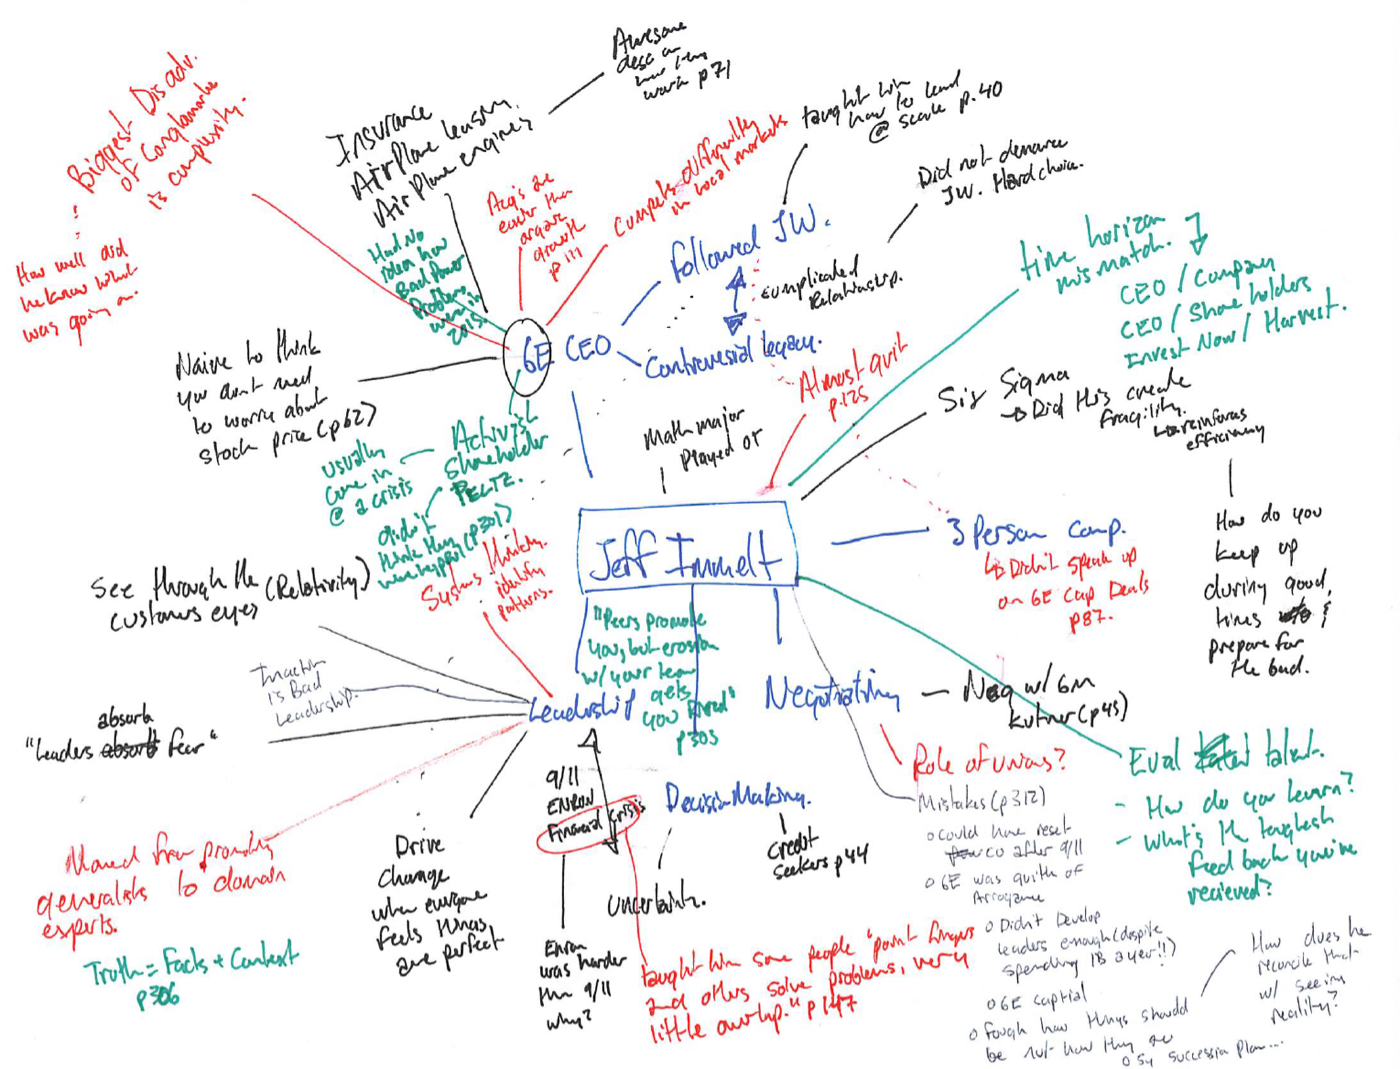 Biggest Disadv.
of Conglamorate
is complexity.
How well did
he know what
was going on.
Insurance
Airplane leasing.
Airplane engines
Awesome
desc on
how they
work p71
Had No
idea how
Bad Power
Problems
were in
2015.
Acq's are
easier than
organic
growth
p 111
Compete differently
in local markets
taught him
how to lead
@ scale p.40
Followed JW.
complicated
Relationship.
Controversial legacy.
Did not denounce
JW. Hard choice.
time horizon
mismatch.
CEO / Company
CEO / Share holders
Invest Now / Harvest.
GE CEO
Naive to think
you don't need
to worry about
stock price (p62)
Almost quit
p.125
Six Sigma
→ Did this create
fragility.
↳ reinforces
efficiency
How do you
keep up
during good
times &
prepare for
the bad.
Math major
Played OT
Activist
Shareholder
PELTZ.
usually
come in
@ a crisis
didn't
think they
were hyprl (p301)
Systems thinking.
identify
patterns.
Jeff Immelt
3 Person comp.
↳ Didn't speak up
on GE Cap Deals
p87.
See through the (Relativity)
customers eyes
Inaction
is Bad
Leadership.
absorb
"Leaders absorb fear"
Leadership
"Peers promote
you, but erosion
w/ your team
gets
you fired"
p303
Negotiating
Neg w/ GM
Kutner (p45)
Role of unions?
Mistakes (p312)
o could have reset
co after 9/11
o GE was guilty of
Arrogance
o Didn't Develop
leaders enough (despite
spending 1B a year!!)
o GE captial
o Fough how things should
be not how they are
o 5y succession plan...
How does he
reconcile that
w/ seeing
reality?
Eval talent.
- How do you learn?
- what's the toughest
feed back you've
recieved?
Moved from promoting
generalists to domain
experts.
Truth = Facts + Context
p306
Drive
Change
when everyone
feels things
are perfect
9/11
ENRON
Financial Crisis
Enron
was harder
than 9/11
why?
Decision Making.
Uncertainty.
Credit
seekers p44
taught him some people "point fingers
and others solve problems, very
little overlap." p147